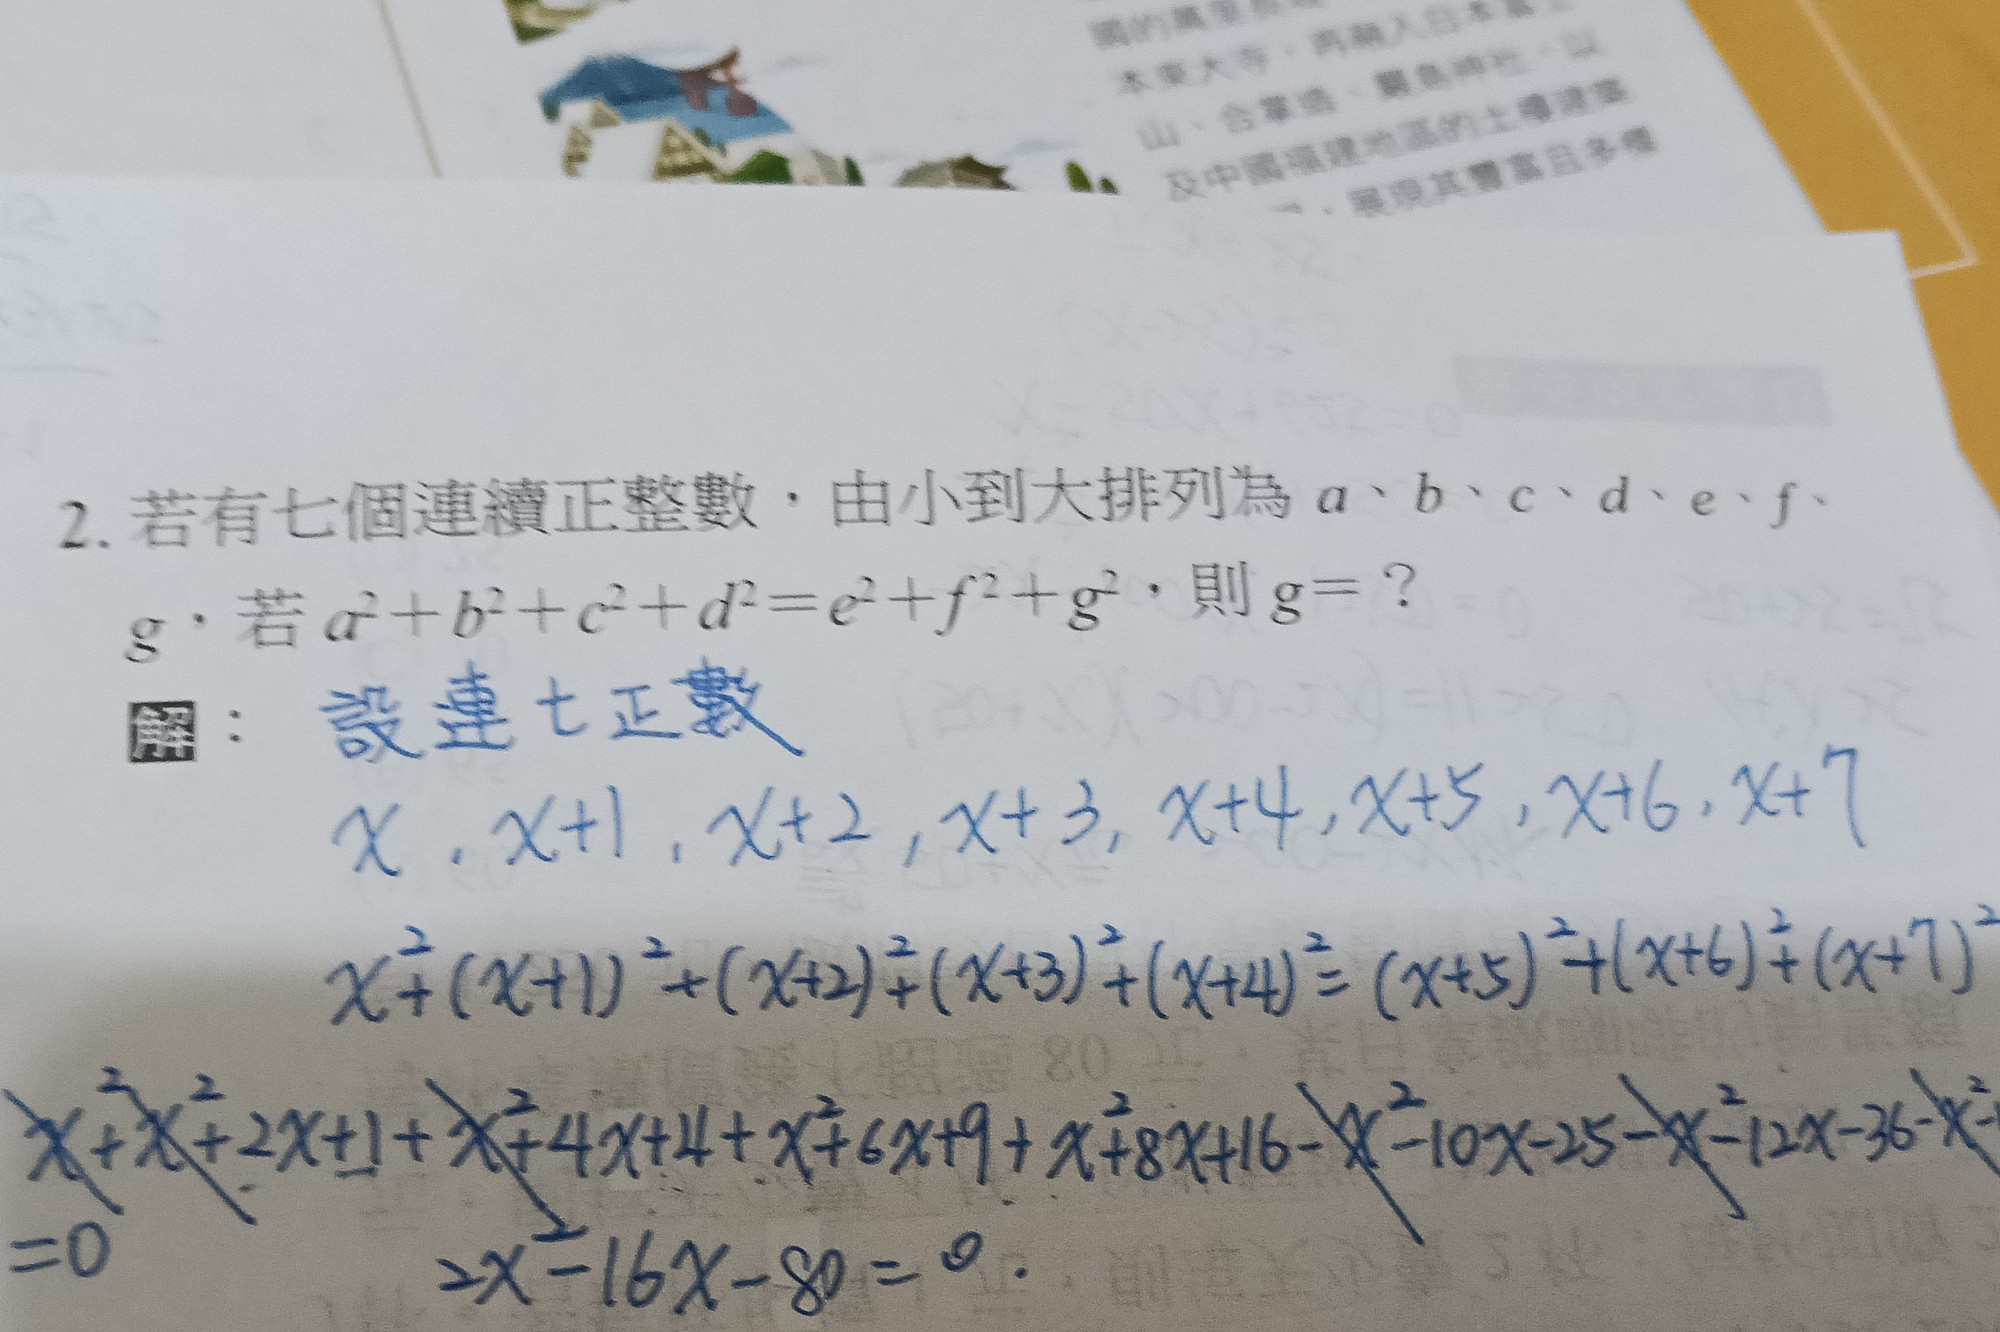 本東大寺，再融入日本富士
山、合掌造、嚴島神社，以
及中國福建地區的土樓建築
，展現其豐富且多樣
2. 若有七個連續正整數，由小到大排列為 a、b、c、d、e、f、
g，若 a²+b²+c²+d²=e²+f²+g²，則 g=？
解： 設連七正數
x , x+1 , x+2 , x+3, x+4, x+5 , x+6 , x+7
x²+(x+1)²+(x+2)²+(x+3)²+(x+4)²=(x+5)²+(x+6)²+(x+7)²
x²+x²+2x+1+x²+4x+4+x²+6x+9+x²+8x+16-x²-10x-25-x²-12x-36-x²-
=0 2x²-16x-80=0.